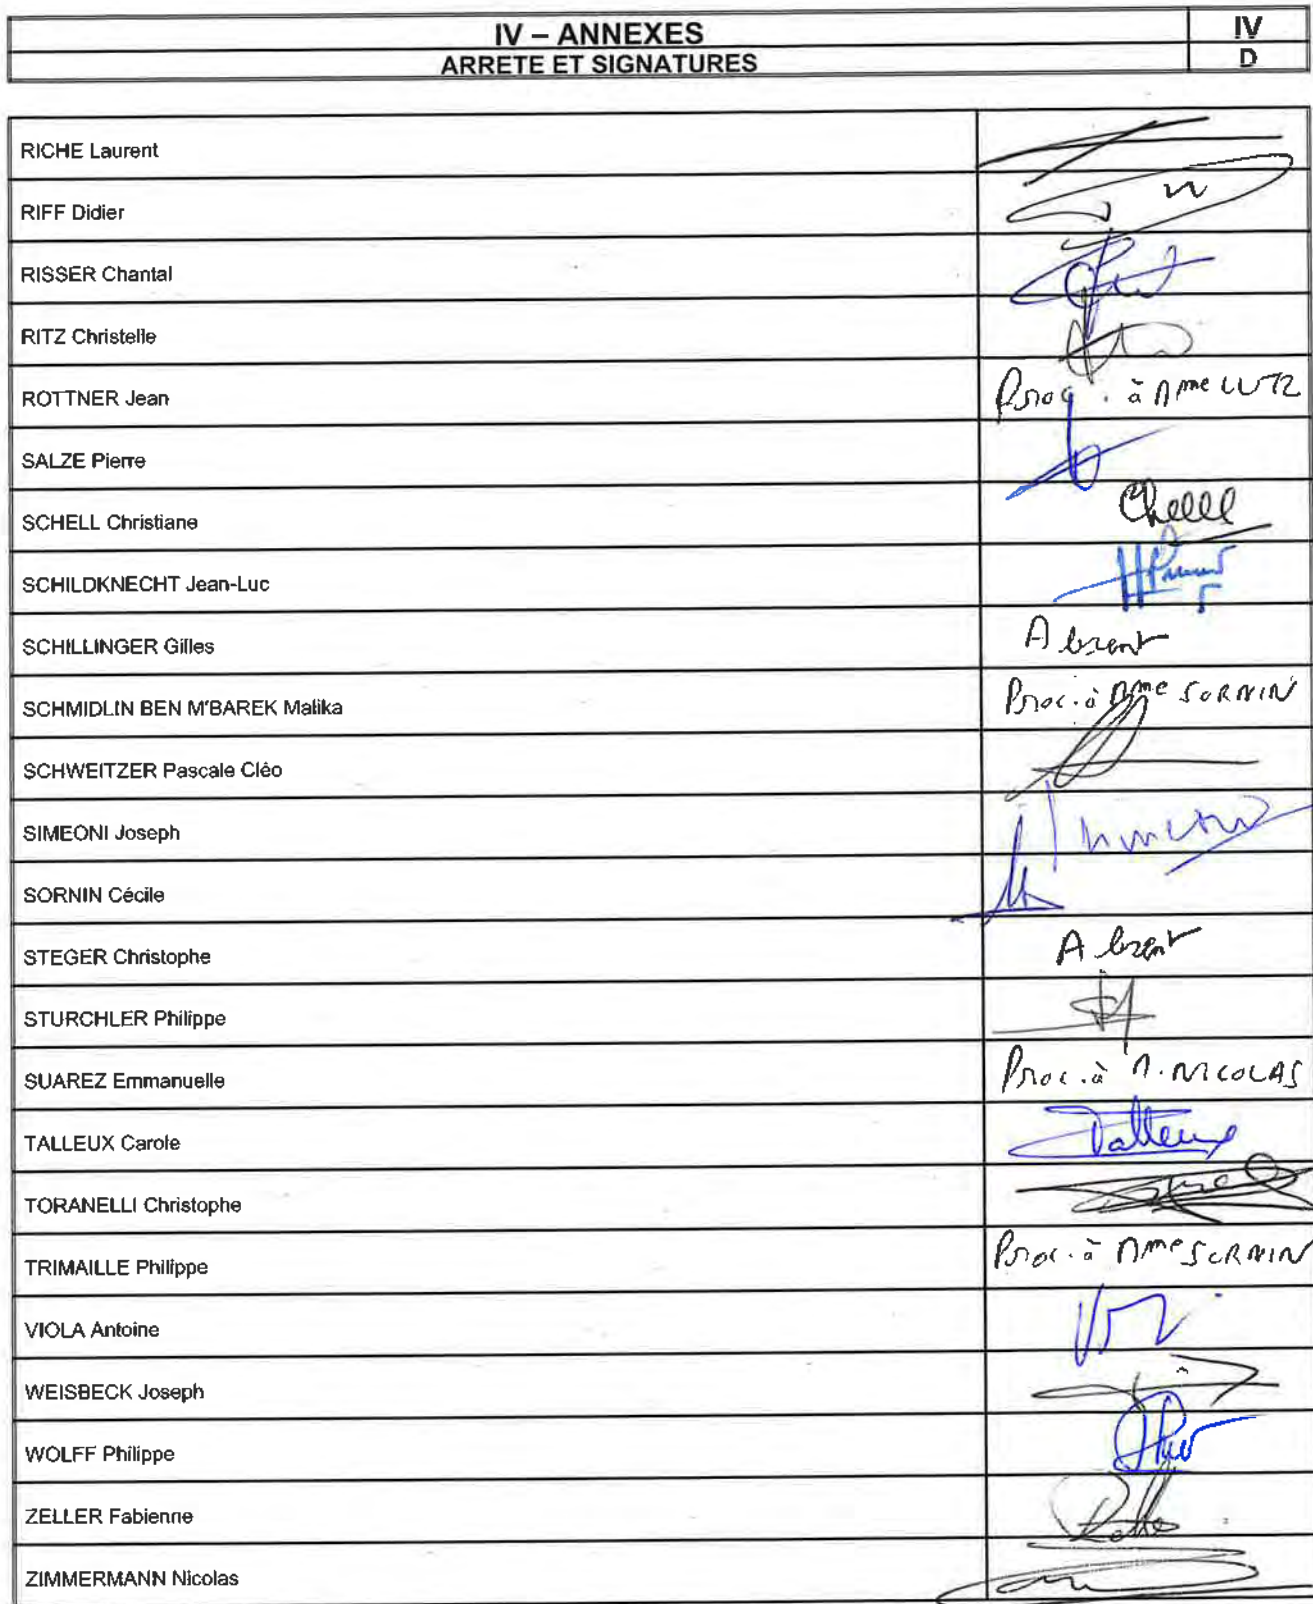 IV – ANNEXES
IV
ARRETE ET SIGNATURES
D
RICHE Laurent
RIFF Didier
RISSER Chantal
RITZ Christelle
ROTTNER Jean
Proc. à Mme LUTZ
SALZE Pierre
SCHELL Christiane
SCHILDKNECHT Jean-Luc
SCHILLINGER Gilles
Absent
SCHMIDLIN BEN M'BAREK Malika
Proc. à Mme SORNIN
SCHWEITZER Pascale Cléo
SIMEONI Joseph
SORNIN Cécile
STEGER Christophe
Absent
STURCHLER Philippe
SUAREZ Emmanuelle
Proc. à M. NICOLAS
TALLEUX Carole
Talleux
TORANELLI Christophe
TRIMAILLE Philippe
Proc. à Mme SORNIN
VIOLA Antoine
WEISBECK Joseph
WOLFF Philippe
ZELLER Fabienne
ZIMMERMANN Nicolas